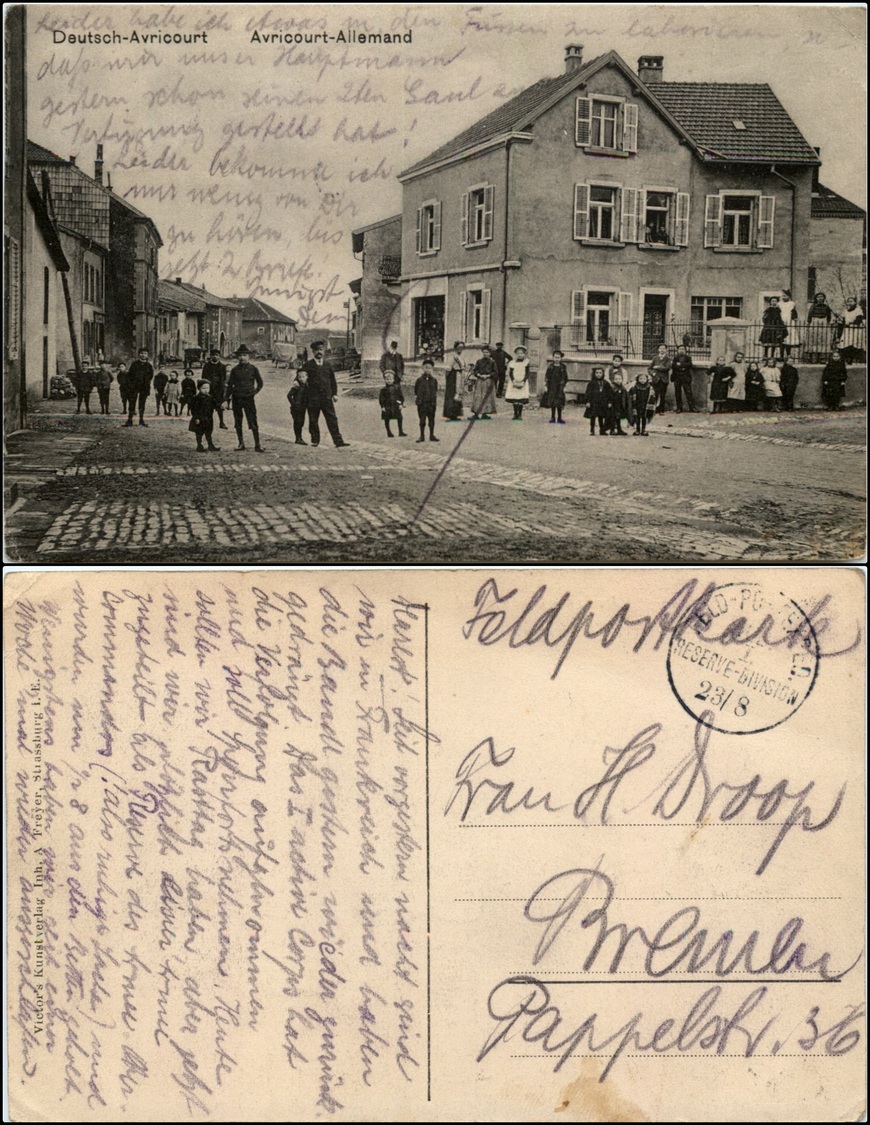 Leider habe ich etwas in den Füssen zu laborieren, so
Deutsch-Avricourt Avricourt-Allemand
daß mir unser Hauptmann
gestern schon seinen 2ten Gaul zur
Verfügung gestellt hat!
Leider bekomme ich
nur wenig von Dir
zu hören, bis
jetzt 2 Briefe.
Innigst
Dein
Feldpostkarte
FELD-POSTEXPED.
1.
RESERVE-DIVISION
23/8
Frau H Droop
Bremen
Pappelstr. 36
Herzl! Seit vorgestern nacht sind
wir in Frankreich und haben
die Bande gestern wieder zurück
gedrängt. Das I active Corps hat
die Verfolgung aufgenommen
und soll Luneville nehmen. Heute
sollten wir Rasttag haben, aber jetzt
sind wir plötzlich einer Armee
zugeteilt als Reserve des Armee Ober-
Commandos (! also ruhige Sache) und
wurden um 1/2 8 aus den Betten geholt.
Wenigstens haben wir doch einen
Woche mal wieder ausgeschlafen.
Victor's Kunstverlag Inh. A Freyer, Strassburg i. E.